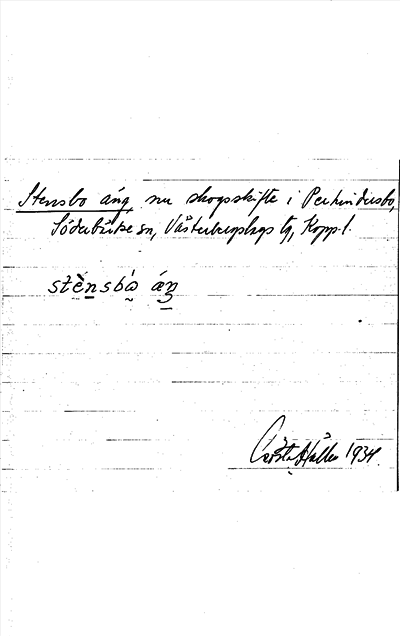 Stensbo äng, nu skogsskifte i Perhindersbo,
Söderbärke sn, Västerbergslags tg, Kopp. l.
stènsbó áŋ
1934.